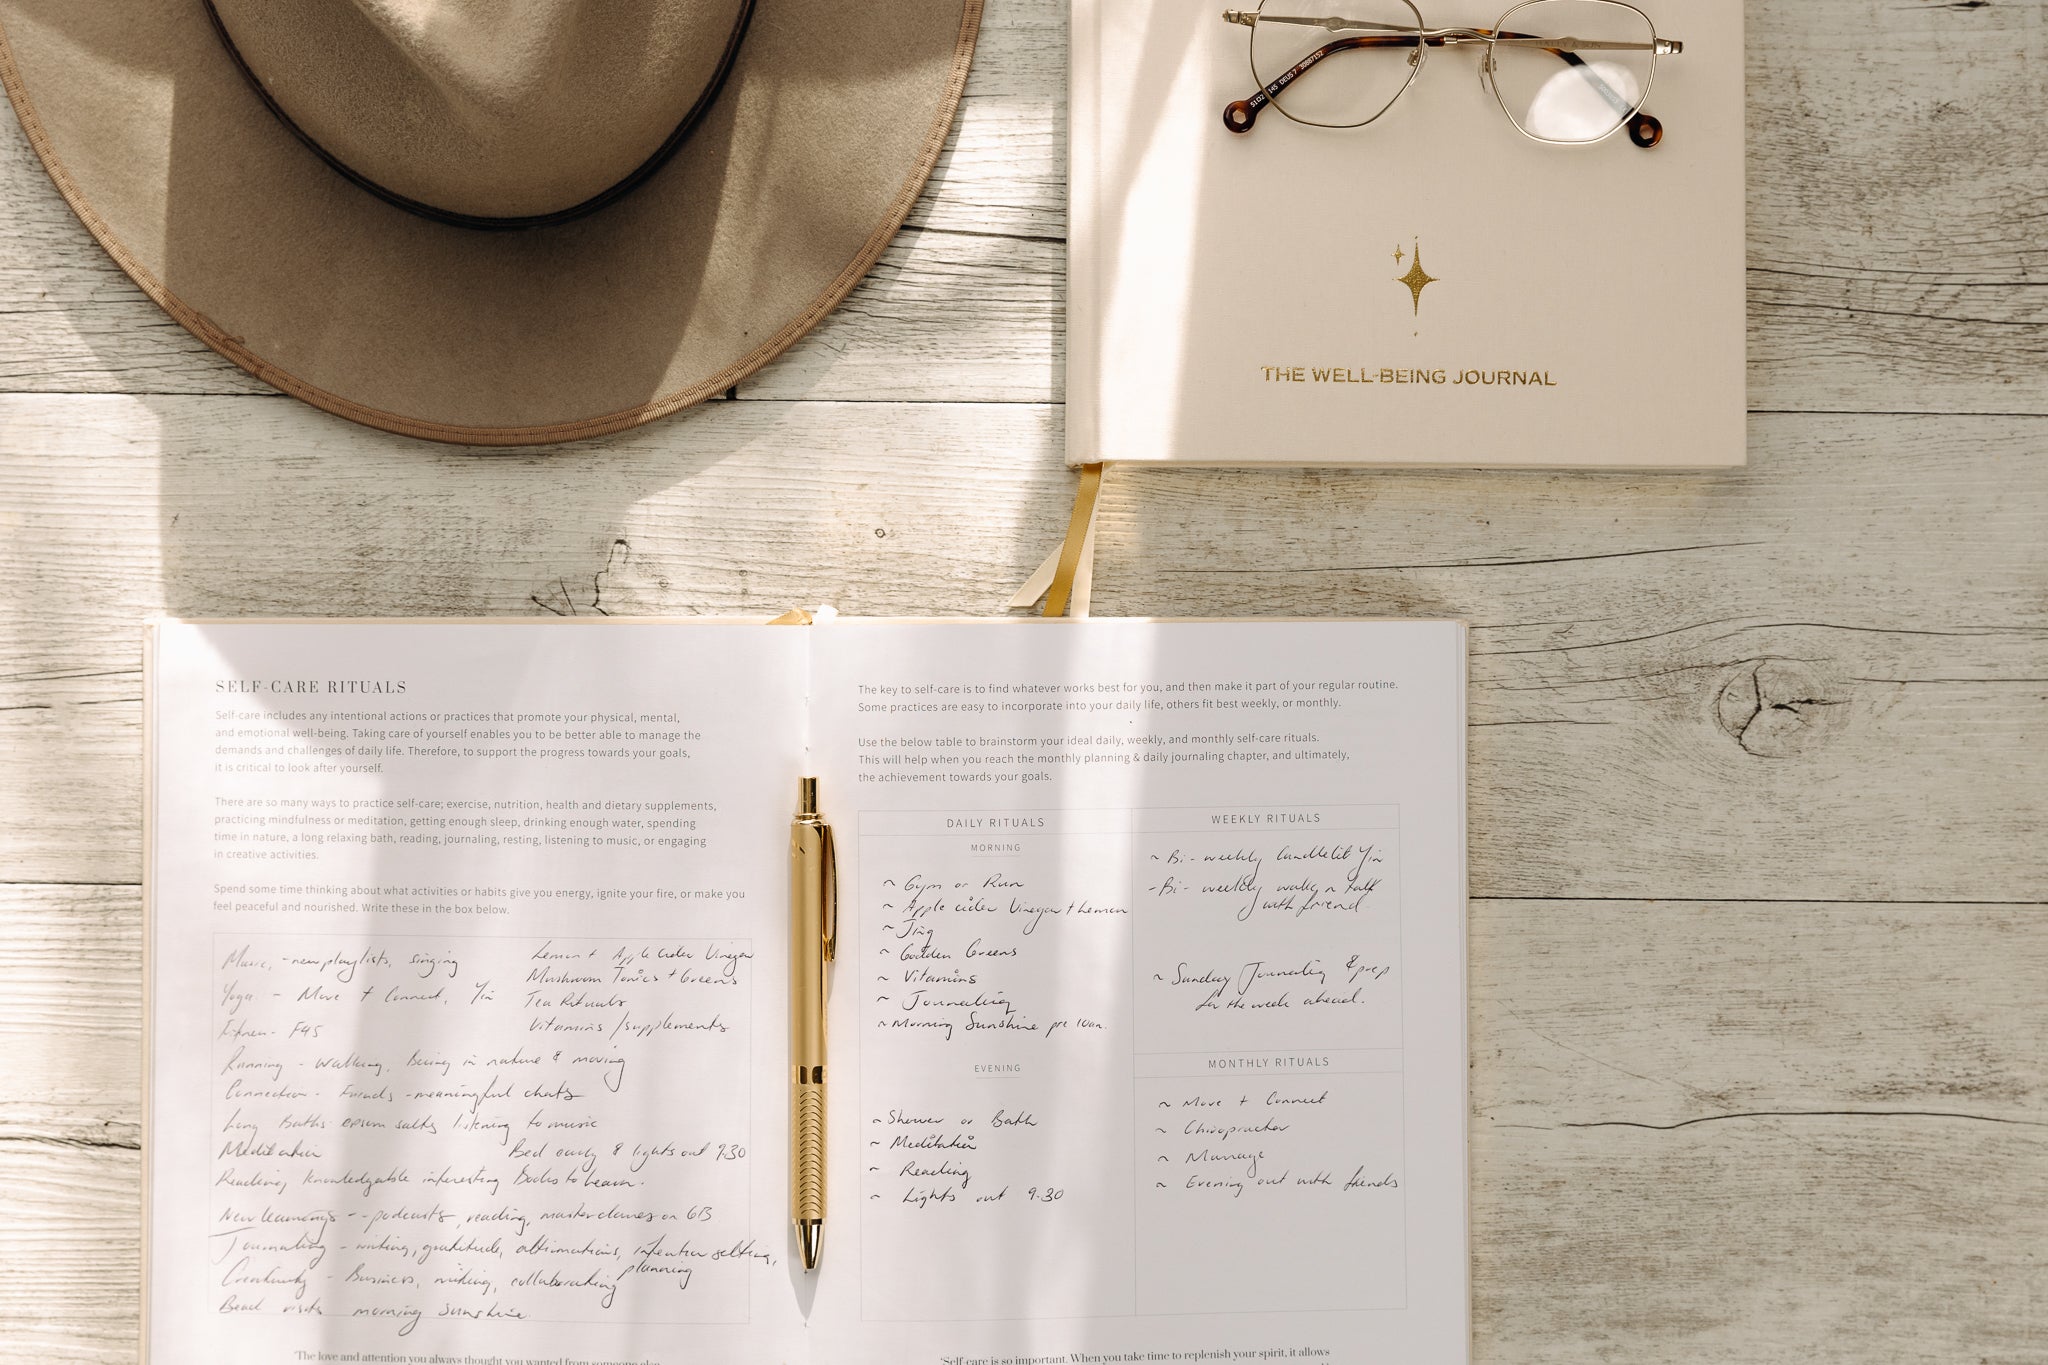 DEUS 7 30887152
THE WELL-BEING JOURNAL
SELF-CARE RITUALS
Self-care includes any intentional actions or practices that promote your physical, mental,
and emotional well-being. Taking care of yourself enables you to be better able to manage the
demands and challenges of daily life. Therefore, to support the progress towards your goals,
it is critical to look after yourself.
There are so many ways to practice self-care; exercise, nutrition, health and dietary supplements,
practicing mindfulness or meditation, getting enough sleep, drinking enough water, spending
time in nature, a long relaxing bath, reading, journaling, resting, listening to music, or engaging
in creative activities.
Spend some time thinking about what activities or habits give you energy, ignite your fire, or make you
feel peaceful and nourished. Write these in the box below.
Music, - new playlists, singing
Yoga - Move + Connect, Yin
Fitness - F45
Lemon + Apple Cider Vinegar
Mushroom Tonics + Greens
Tea Rituals
Vitamins / supplements
Running - walking, Being in nature & moving
Connection - Friends - meaningful chats
Long Baths epsom salts listening to music
Meditation Bed early & lights out 9:30
Reading knowledgable interesting Books to learn.
New learnings - podcasts, reading, masterclasses on
Journaling - writing, gratitude, affirmations, intention setting,
planning
Creativity - Business, writing, collaborating
Beach visits morning sunshine.
'The love and attention you always thought you wanted from someone else
The key to self-care is to find whatever works best for you, and then make it part of your regular routine.
Some practices are easy to incorporate into your daily life, others fit best weekly, or monthly.
Use the below table to brainstorm your ideal daily, weekly, and monthly self-care rituals.
This will help when you reach the monthly planning & daily journaling chapter, and ultimately,
the achievement towards your goals.
DAILY RITUALS
MORNING
~ Gym or Run
~ Apple cider Vinegar + Lemon
~ Jing
~ Golden Greens
~ Vitamins
~ Journaling
~ Morning Sunshine pre 10am.
EVENING
~ Shower or Bath
~ Meditation
~ Reading
~ Lights out 9.30
WEEKLY RITUALS
~ Bi-weekly Candlelit Yin
- Bi-weekly walk n talk
with friend
~ Sunday Journaling & prep
for the week ahead.
MONTHLY RITUALS
~ Move + Connect
~ Chiropractor
~ Massage
~ Evening out with friends
'Self-care is so important. When you take time to replenish your spirit, it allows